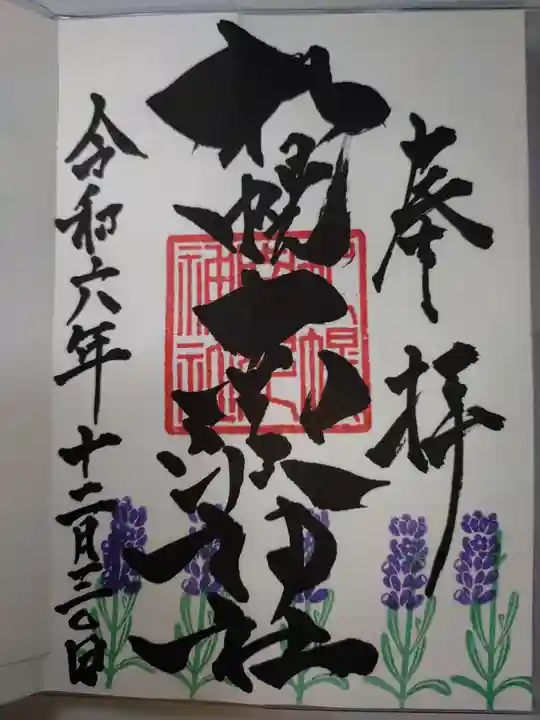 奉拝
札幌南沢神社
令和六年十二月三〇日
神社